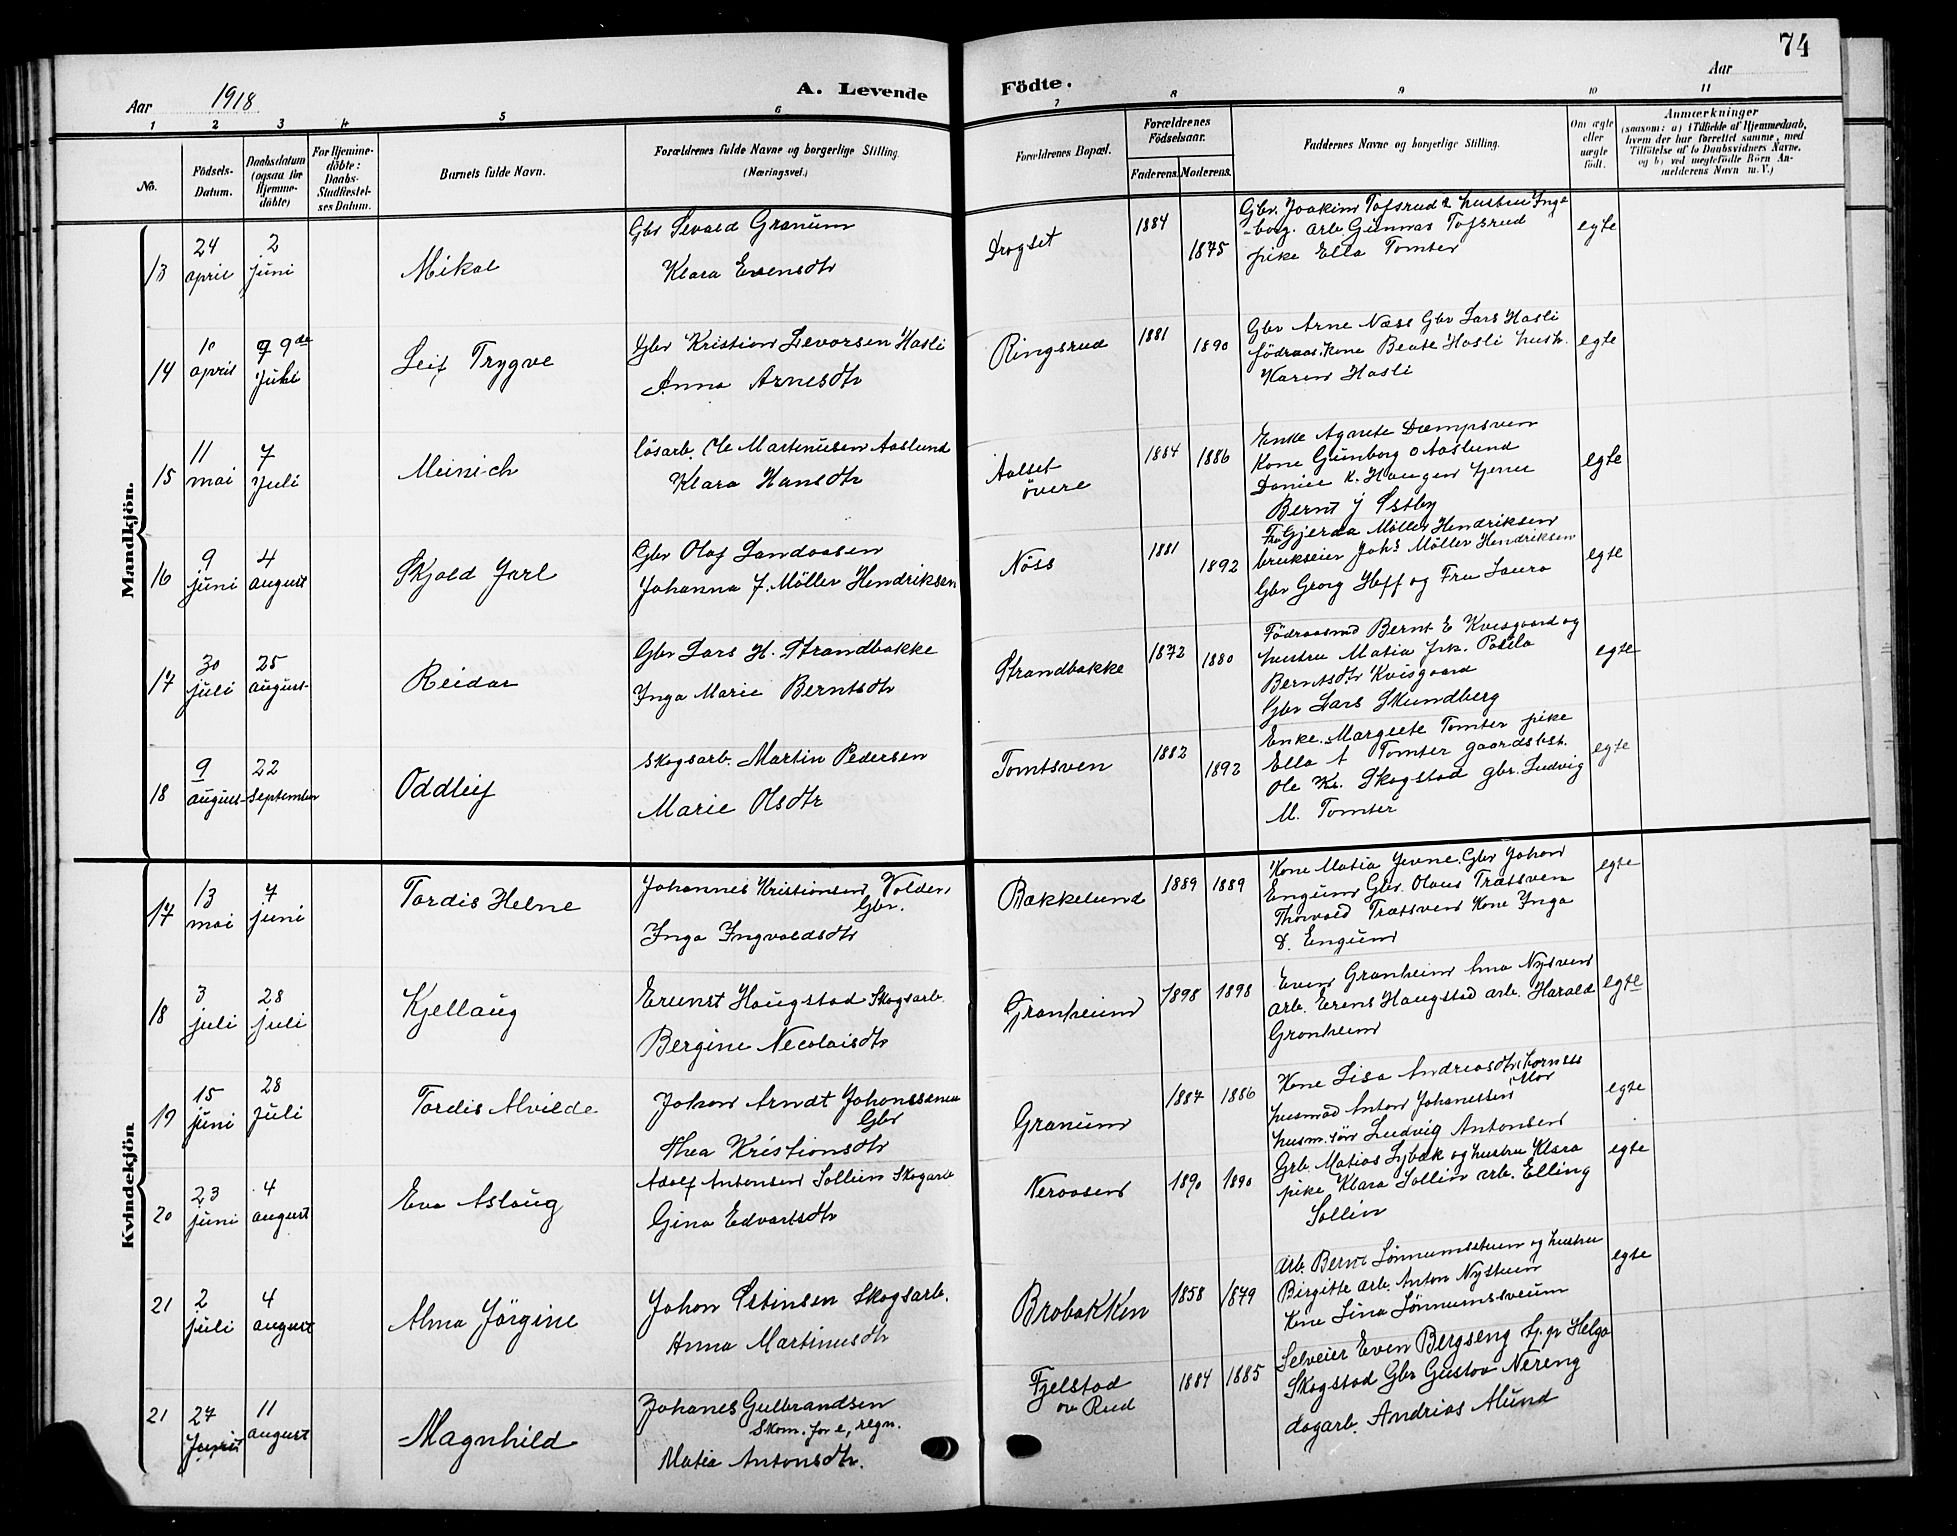 74
Aar 1918
A. Levende Födte.
Aar
1 2 3 4 5 6 7 8 9 10 11
No.
Födsels-Datum.
Daabsdatum (ogsaa for Hjemme-döbte)
For Hjemme-döbte: Daabs-Stadfæstel-ses Datum.
Barnets fulde Navn.
Forældrenes fulde Navne og borgerlige Stilling. (Næringsvei.)
Forældrenes Bopæl.
Forældrenes Födselsaar.
Faderens. Moderens.
Faddernes Navne og borgerlige Stilling.
Om ægte eller uægte født.
Anmærkninger
(saasom: a) i Tilfælde af Hjemmedaab, hvem der har forrettet samme, med Tilföielse af to Daabsvidners Navne, og b) ved uægtefödte Börn An-melderens Navn m. V.)
Mandkjön.
13 24 april 2 juni Mikal
Gbr Sevald Granum
Klara Evensdtr
Drogset 1884 1875
Gbr. Joakim Tofsrud & hustru Inge
-borg. arb. Gunnar Tofsrud
pike Ella Tomter
egte
14 10 april 9de Juni Leif Trygve
Gbr Kristian Sevorsen Hasli
Anna Arnesdtr
Ringsrud 1881 1890
Gbr Arne Næss Gbr Lars Hasli
födraas. Kone Beate Hasli hush.
Karen Hasli
egte
15 11 mai 7 Juli Meinich
lösarb. Ole Martinusen Aaslund
Klara Hansdtr
Aalset övere 1884 1886
Enke Agnete Dæmpsven
Kone Gunborg O Aaslund
Daniel K. Haugen
Bernt J Østby
egte
16 9 juni 4 august Skjold Jarl
Gbr Olaf Landaasen
Johanna J. Möller Hendriksen
Nöss 1881 1892
Fr Gjerda Möller Hendriksen
brukseier Johs Möller Hendriksen
Gbr Georg Hoff og Fru Laura
egte
17 30 juli 25 august Reidar
Gbr Lars H. Strandbakke
Inga Marie Berntsdtr
Strandbakke 1872 1880
Födraasmd Bernt E Kvisgaard og
hustru Matia
Berntsdtr Kvisgaard
Gbr Lars Skundberg
egte
18 9 august 22 September Oddleif
Skogsarb. Martin Pedersen
Marie Olsdtr
Tomtsven 1882 1892
Enke Margrete Tomter pike
Ella A Tomter gaardsbest.
Ole Kr. Skogstad gbr. Ludvig
M. Tomter
egte
Kvindekjön
17 13 mai 7 juni Tordis Helne
Johannes Kristiansen Volden,
Gbr.
Inga Ingvaldsdtr
Bakkelund 1889 1889
Kone Matia Jevne. Gbr Johan
Engum Gbr. Olaus Trætsven
Thorvald Trætsven Kone Inga
O. Engum
egte
18 3 juli 28 juli Kjellaug
Erunst Haugstad Skogsarb.
Bergine Necolaisdtr
Granheim 1898 1898
Even Granheim Ana Nysven
arb. Erens Haugstad arb. Harald
Granheim
egte
19 15 juni 28 juli Tordis Alvilde
Johan Arndt Johanssenen
Gbr
Thea Kristiansdtr
Granum 1887 1886
Kone Lisa Andreasdtr, barnets
Mor
husmad Anton Johanessen
husm. sön Ludvig Antonsen
egte
20 23 juni 4 august Eva Aslaug
Adolf Antonsen Sollien Skogarb
Gina Edvartsdtr
Neraasen 1890 1890
Grb. Matias Lybæk og hustru Klara
pike Klara Sollin arb. Elling
Sollin
egte
21 2 juli 4 august Alma Jörgine
Johan Østinsen Skogsarb.
Anna Martinusdtr
Brobakken 1858 1879
arb. Bernt Lönnumsstuen og hustru
Birgitte arb. Anton Nystuen
Kone Lina Lönnumssveum
egte
21 27 11 august Magnhild
Johanes Gulbrandsen
Skom. for e, regn.
Matia Antonsdtr.
Fjelstad ov Rud 1884 1885
Selveier Even Bergseng tj.pi Helga
Skogstad Gbr Gustav Nereng
dagarb. Andrias Alund